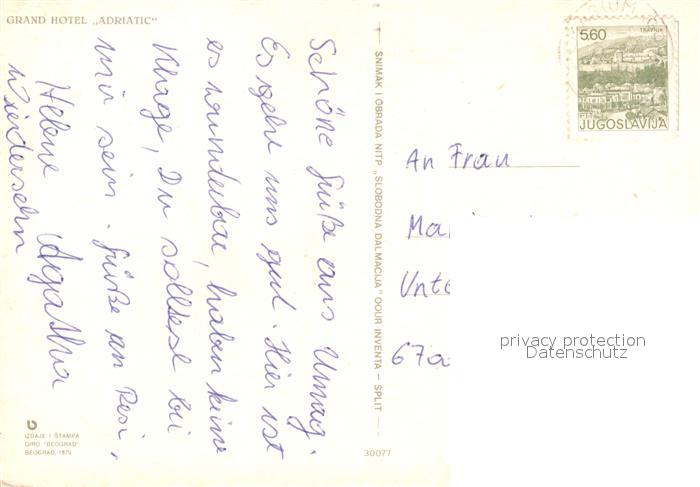 GRAND HOTEL „ADRIATIC"
Schöne Grüße aus Umag.
Es geht uns gut. Hier ist
es wunderbar, haben keine
Klage, Du solltest bei
mir sein. Grüße an Resi,
Helene Agatha
Wiedersehn
IZDAJE I ŠTAMPA
GIRO "BEOGRAD"
BEOGRAD, 1979
SNIMAK I OBRADA NITP „SLOBODNA DALMACIJA" OOUR INVENTA — SPLIT —
30077
5,60
TRAVNIK
PTT
JUGOSLAVIJA
An Frau
Ma
Unte
67
privacy protection
Datenschutz